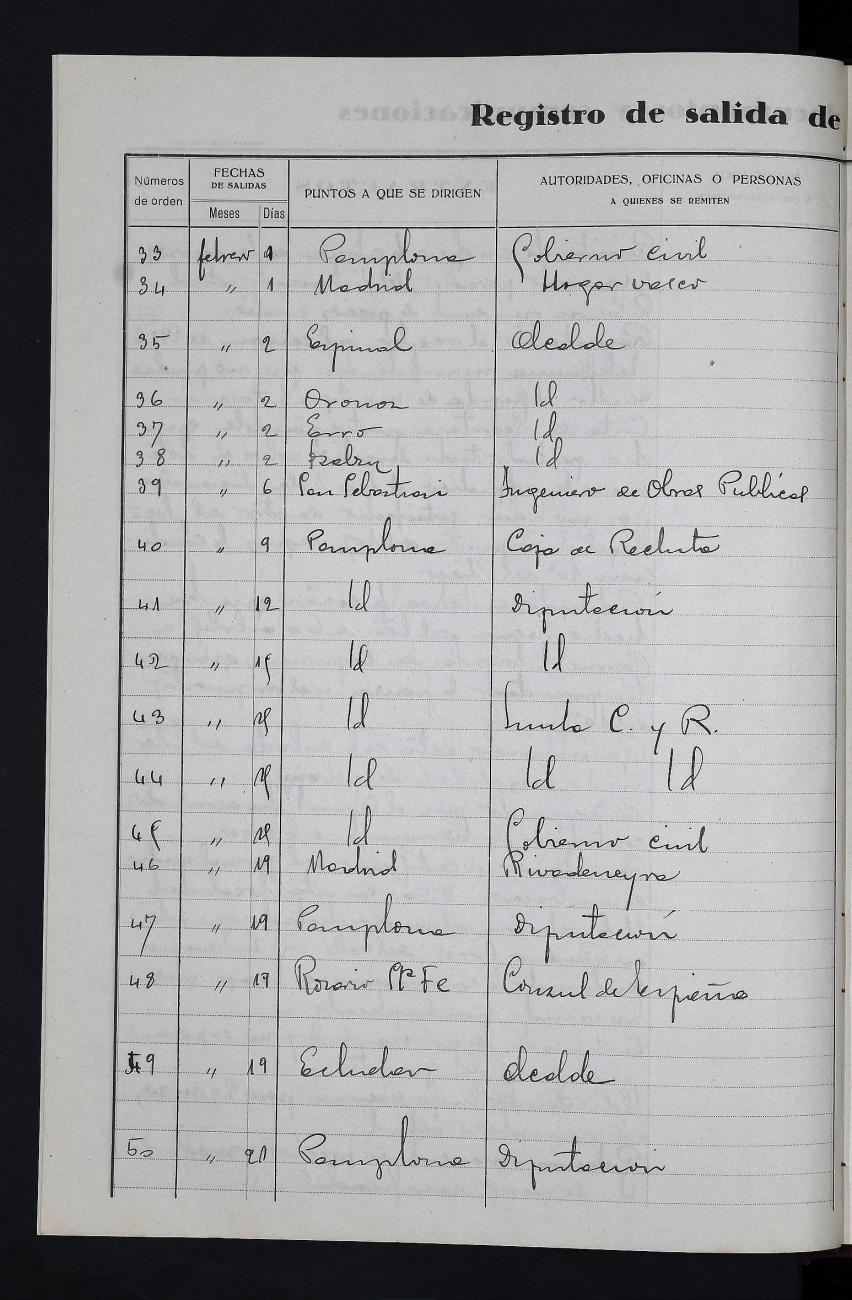 Registro de salida de
Números de orden
FECHAS DE SALIDAS
Meses Días
PUNTOS A QUE SE DIRIGEN
AUTORIDADES, OFICINAS O PERSONAS
A QUIENES SE REMITEN
33 febrero 1 Pamplona Gobierno civil
34 " 1 Madrid Hogar vasco
35 " 2 Espinal Alcalde
36 " 2 Oronoz Id
37 " 2 Erro Id
38 " 2 Id
39 " 6 San Sebastian Ingeniero de Obras Publicas
40 " 9 Pamplona Caja de Recluta
41 " 12 Id Diputación
42 " 15 Id Id
43 " Id Junta C. y R.
44 " Id Id Id
45 " Id Gobierno civil
46 " 19 Madrid Rivadeneyra
47 " 19 Pamplona Diputación
48 " 19 Rosario Sta Fe Consul de España
49 " 19 Echalar Alcalde
50 " 21 Pamplona Diputacion